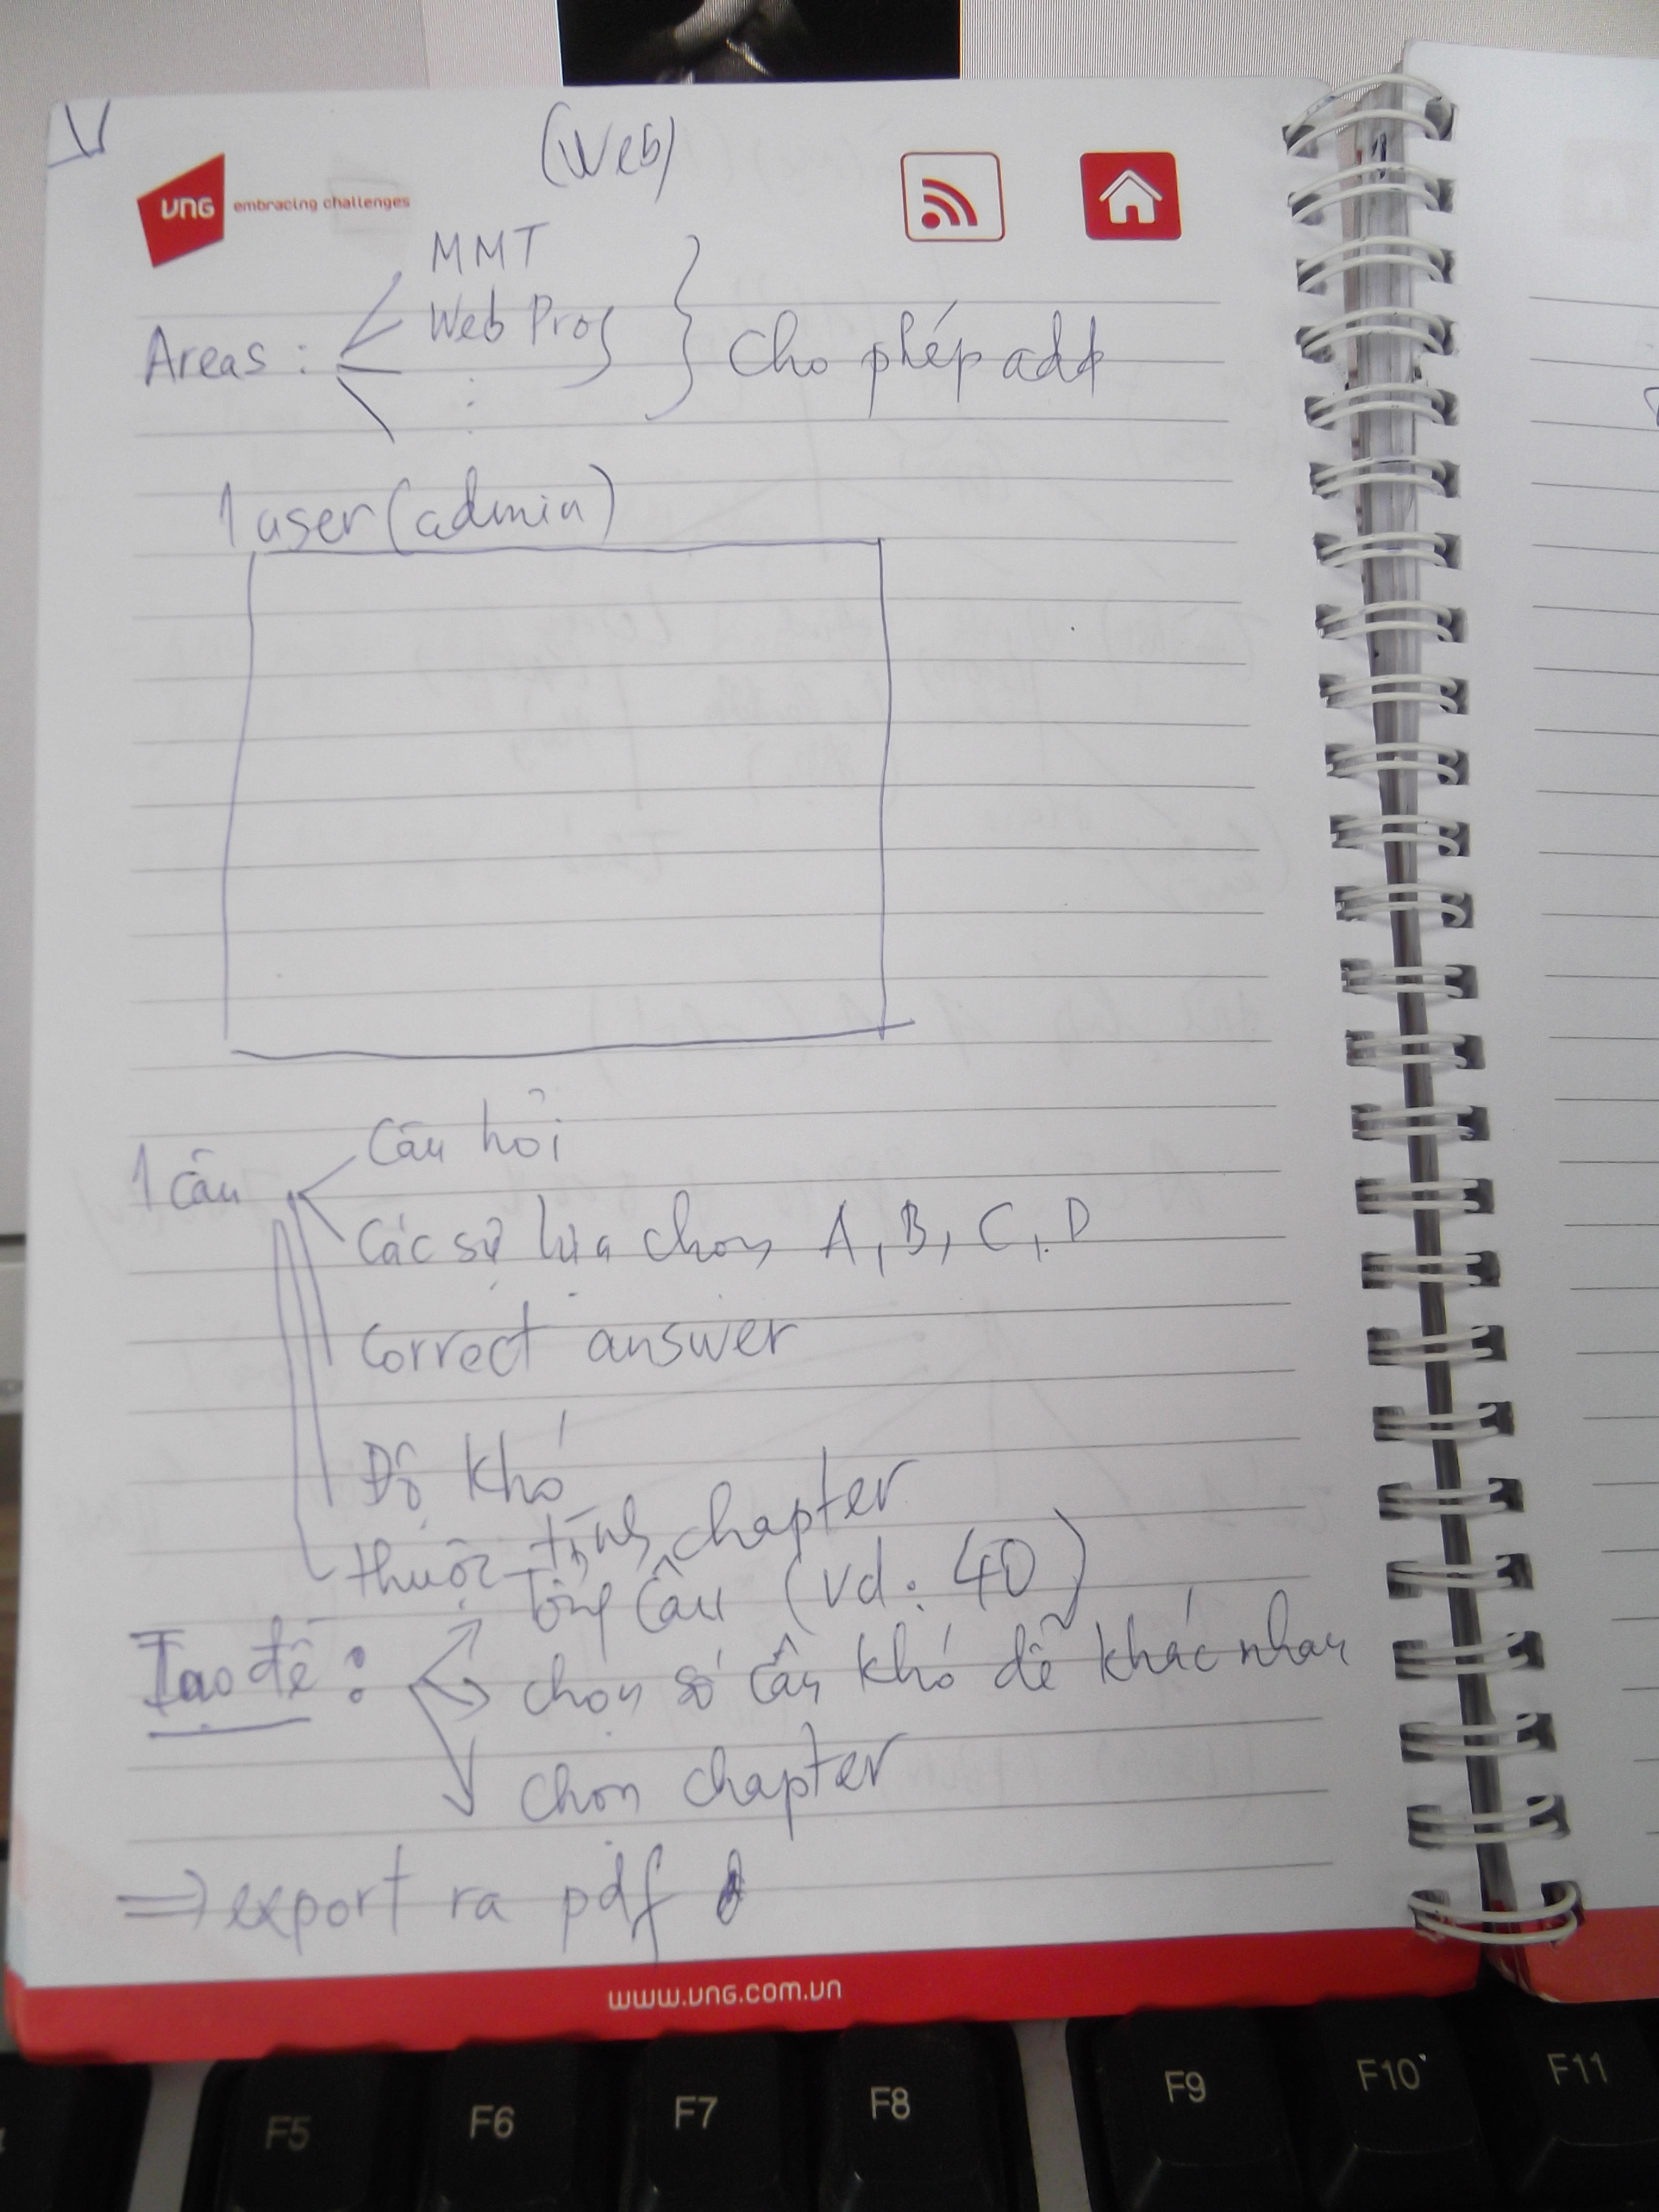 (Web)
VNG embracing challenges
MMT
Web Prog
Areas : Cho phép add
1 user (admin)
1 câu
Câu hỏi
Các sự lựa chọn A, B, C, D
Correct answer
Độ khó
thuộc tính chapter
Tạo đề :
Tổng câu (vd: 40)
chọn số câu khó dễ khác nhau
chọn chapter
⇒ export ra pdf
www.vng.com.vn
F5 F6 F7 F8 F9 F10 F11